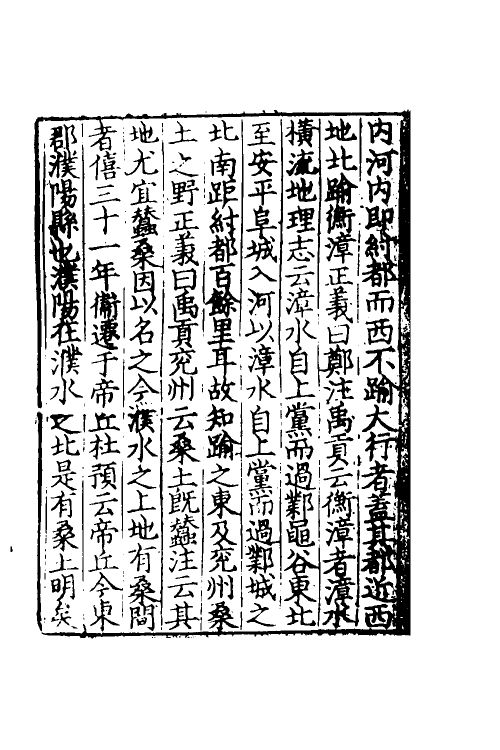 内河内即紂都而西不踰大行者蓋其都近西
地北踰衡漳正義曰鄭注禹貢云衡漳者漳水
橫流地理志云漳水自上黨而過鄴黽谷東北
至安平阜城入河以漳水自上黨而過鄴城之
北南距紂都百餘里耳故知踰之東及兖州桑
土之野正義曰禹貢兖州云桑土既蠶注云其
地尤宜蠶桑因以名之今濮水之上地有桑間
者僖三十一年衞遷于帝丘杜預云帝丘今東
郡濮陽縣也濮陽在濮水之北是有桑土明矣